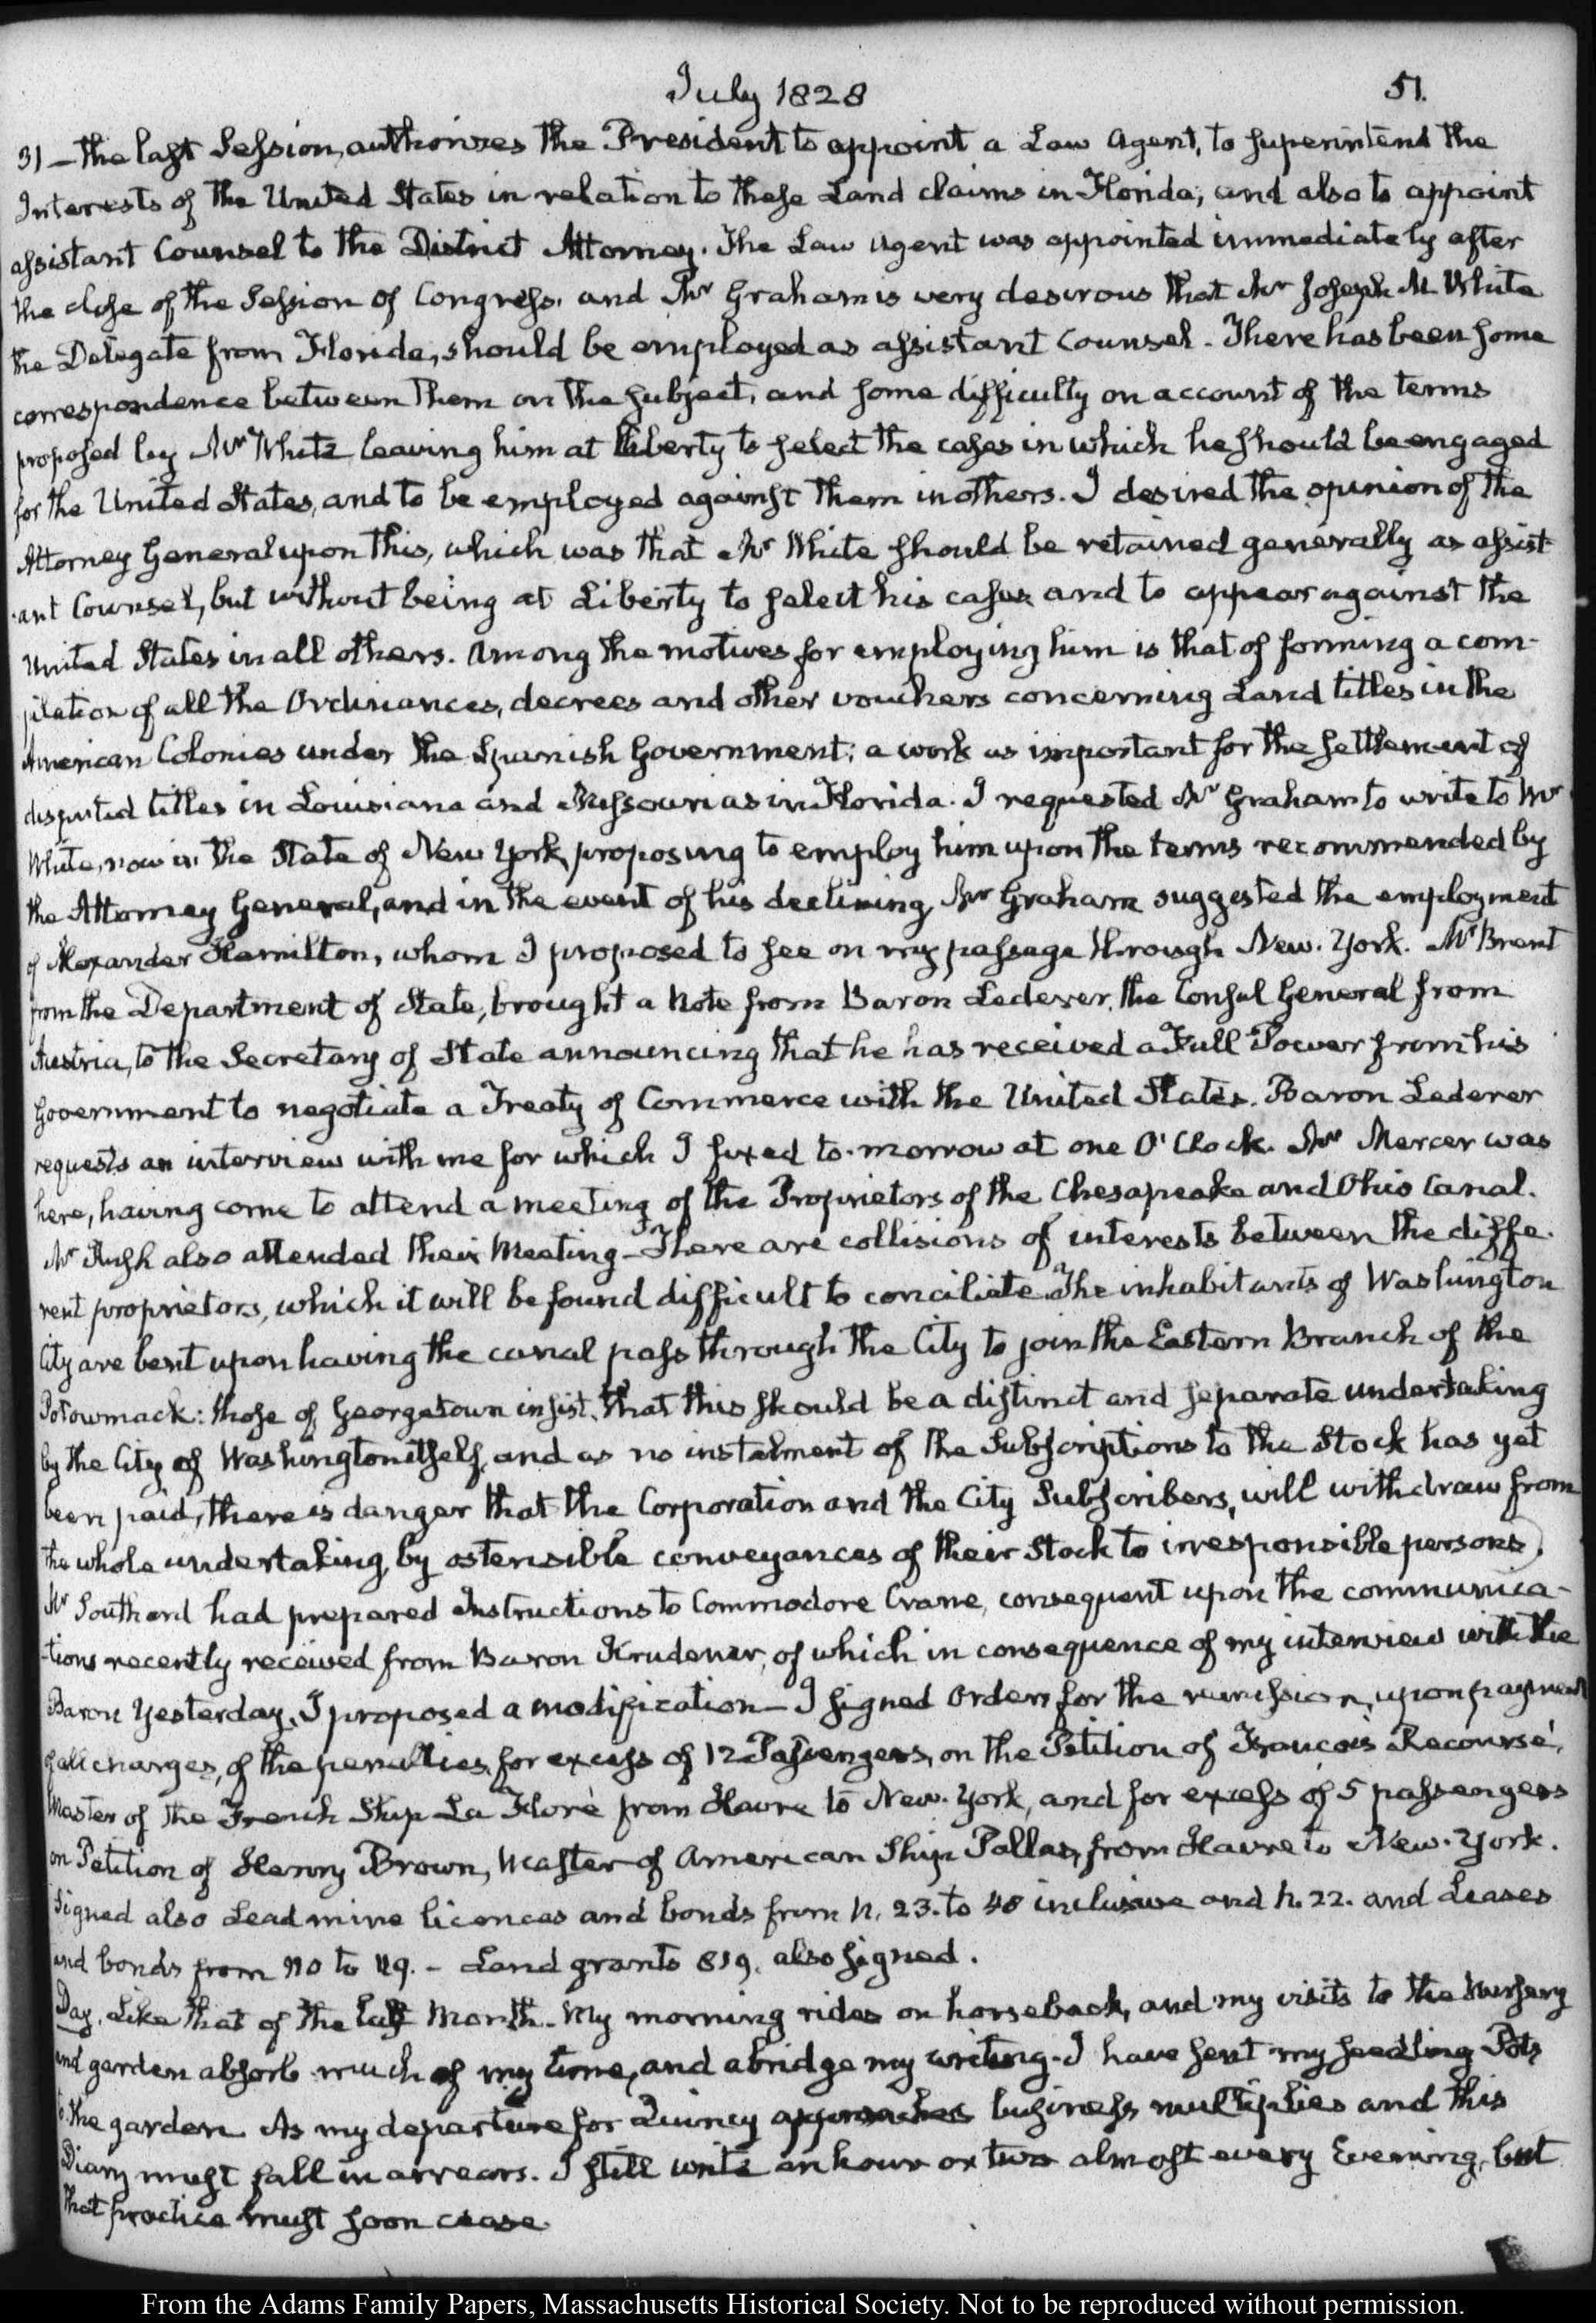 July 1828
51.
31 — the last Session, authorizes the President to appoint a Law Agent, to superintend the
Interests of the United States in relation to these Land claims in Florida; and also to appoint
assistant Counsel to the District Attorney. The Law Agent was appointed immediately after
the close of the Session of Congress. and Mr Graham is very desirous that Mr Joseph M White
the Delegate from Florida, should be employed as assistant Counsel. There has been some
correspondence between them on the subject, and some difficulty on account of the terms
proposed by Mr White leaving him at liberty to select the cases in which he should be engaged
for the United States, and to be employed against them in others. I desired the opinion of the
Attorney General upon this, which was that Mr White should be retained generally as assist
-ant Counsel, but without being at Liberty to select his cases and to appear against the
United States in all others. Among the motives for employing him is that of forming a com-
pilation of all the Ordinances, decrees and other vouchers concerning Land titles in the
American Colonies under the Spanish Government; a work as important for the settlement of
disputed titles in Louisiana and Missouri as in Florida. I requested Mr Graham to write to Mr
White, now in the State of New York, proposing to employ him upon the terms recommended by
the Attorney General, and in the event of his declining, Mr Graham suggested the employment
of Alexander Hamilton, whom I proposed to see on my passage through New-York. Mr Brent
from the Department of State, brought a Note from Baron Lederer, the Consul General from
Austria, to the Secretary of State announcing that he has received a Full Power from his
Government to negotiate a Treaty of Commerce with the United States. Baron Lederer
requests an interview with me for which I fixed to-morrow at one O'Clock. Mr Mercer was
here, having come to attend a meeting of the Proprietors of the Chesapeake and Ohio Canal.
Mr Rush also attended their Meeting — There are collisions of interests between the diffe-
rent proprietors, which it will be found difficult to conciliate. The inhabitants of Washington
City are bent upon having the canal pass through the City to join the Eastern Branch of the
Potowmack: those of Georgetown insist, that this should be a distinct and separate undertaking
by the City of Washington itself, and as no instalment of the Subscriptions to the Stock has yet
been paid, there is danger that the Corporation and the City Subscribers, will withdraw from
the whole undertaking, by ostensible conveyances of their Stock to irresponsible persons).
Mr Southard had prepared Instructions to Commodore Crane, consequent upon the communica-
-tions recently received from Baron Krudener, of which in consequence of my interview with the
Baron Yesterday, I proposed a modification — I signed Orders for the remission, upon payment
of all charges, of the penalties, for excess of 12 Passengers, on the Petition of Francois Recourse,
Master of the French Ship La Flore from Havre to New-York, and for excess of 5 passengers
on Petition of Henry Brown, Master of American Ship Pallas, from Havre to New-York.
Signed also Lead mine licences and bonds from N. 23. to 48 inclusive and N. 22. and Leases
and bonds from 110 to 119. — Land grants 819. also signed.
Day. Like that of the last Month. My morning rides on horseback, and my visits to the Nursery
and garden absorb much of my time, and abridge my writing. I have sent my seedling Pots
to the garden. As my departure for Quincy approaches business multiplies and this
Diary must fall in arrears. I still write an hour or two almost every Evening, but
that practice must soon cease.
From the Adams Family Papers, Massachusetts Historical Society. Not to be reproduced without permission.